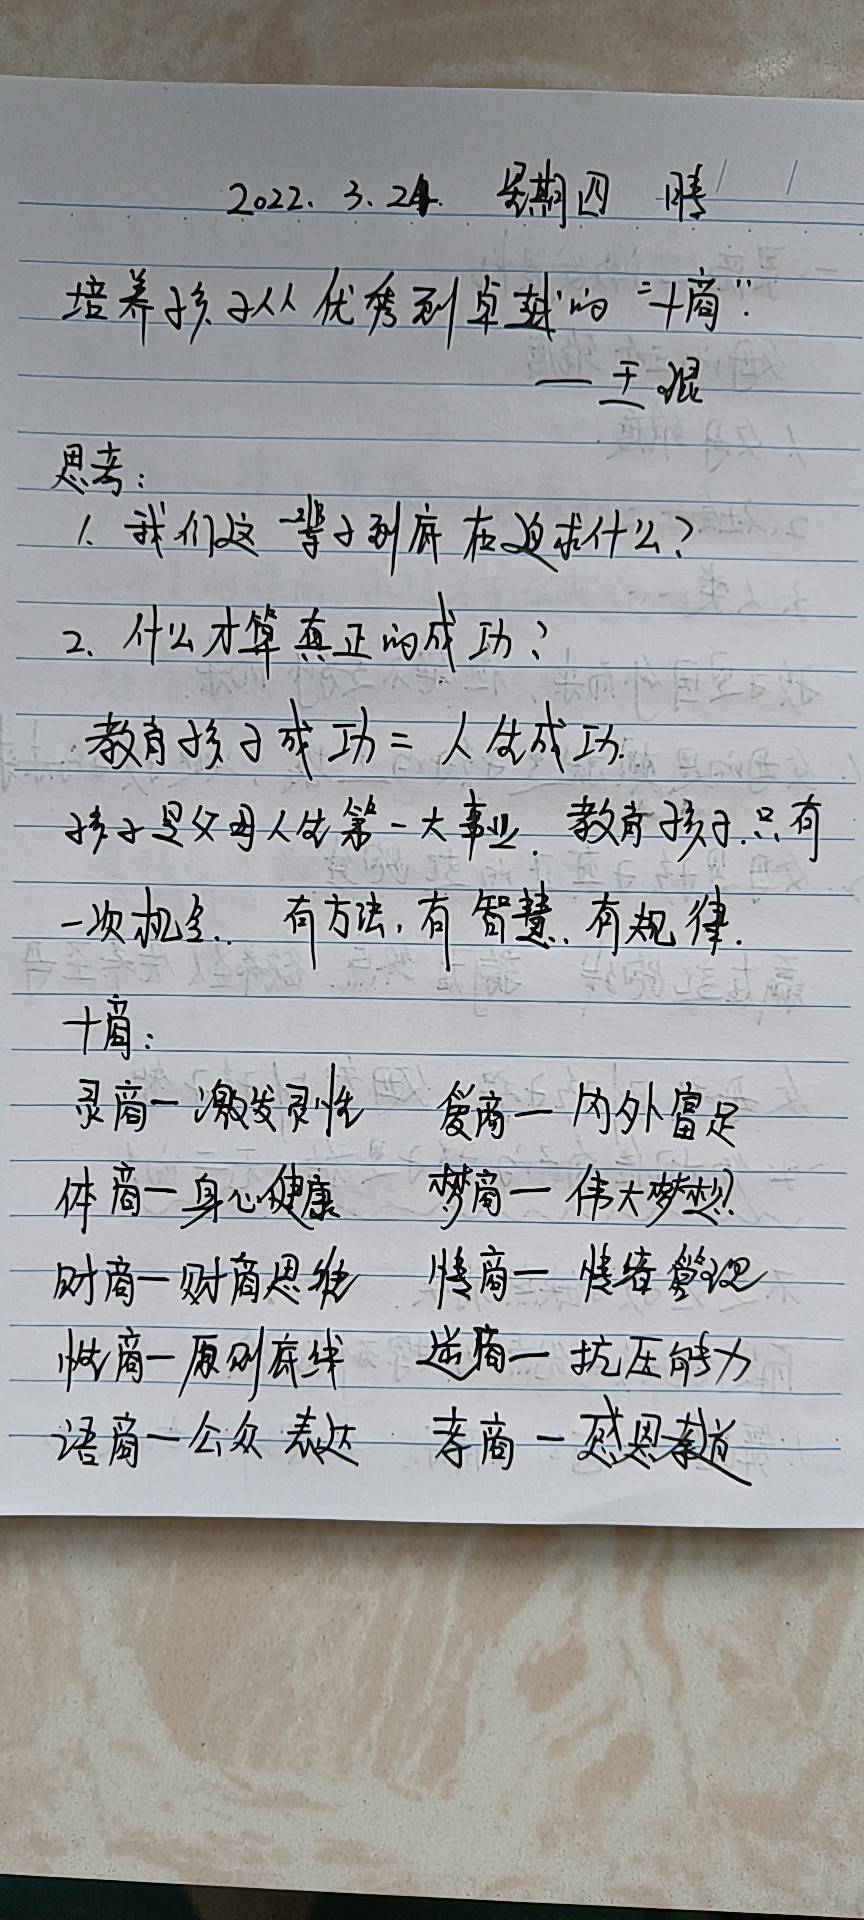 2022.3.24. 星期四 晴
培养孩子从优秀到卓越的"十商".
——王琨
思考:
1. 我们这一辈子到底在追求什么?
2. 什么才算真正的成功?
教育孩子成功=人生成功.
孩子是父母人生第一大事业. 教育孩子.只有
一次机会. 有方法,有智慧、有规律.
十商:
灵商—激发灵性 爱商—内外富足
体商—身心健康 梦商—伟大梦想
财商—财商思维 情商—情绪管理
性商—原则底线 逆商—抗压能力
语商—公众表达 孝商—感恩孝道